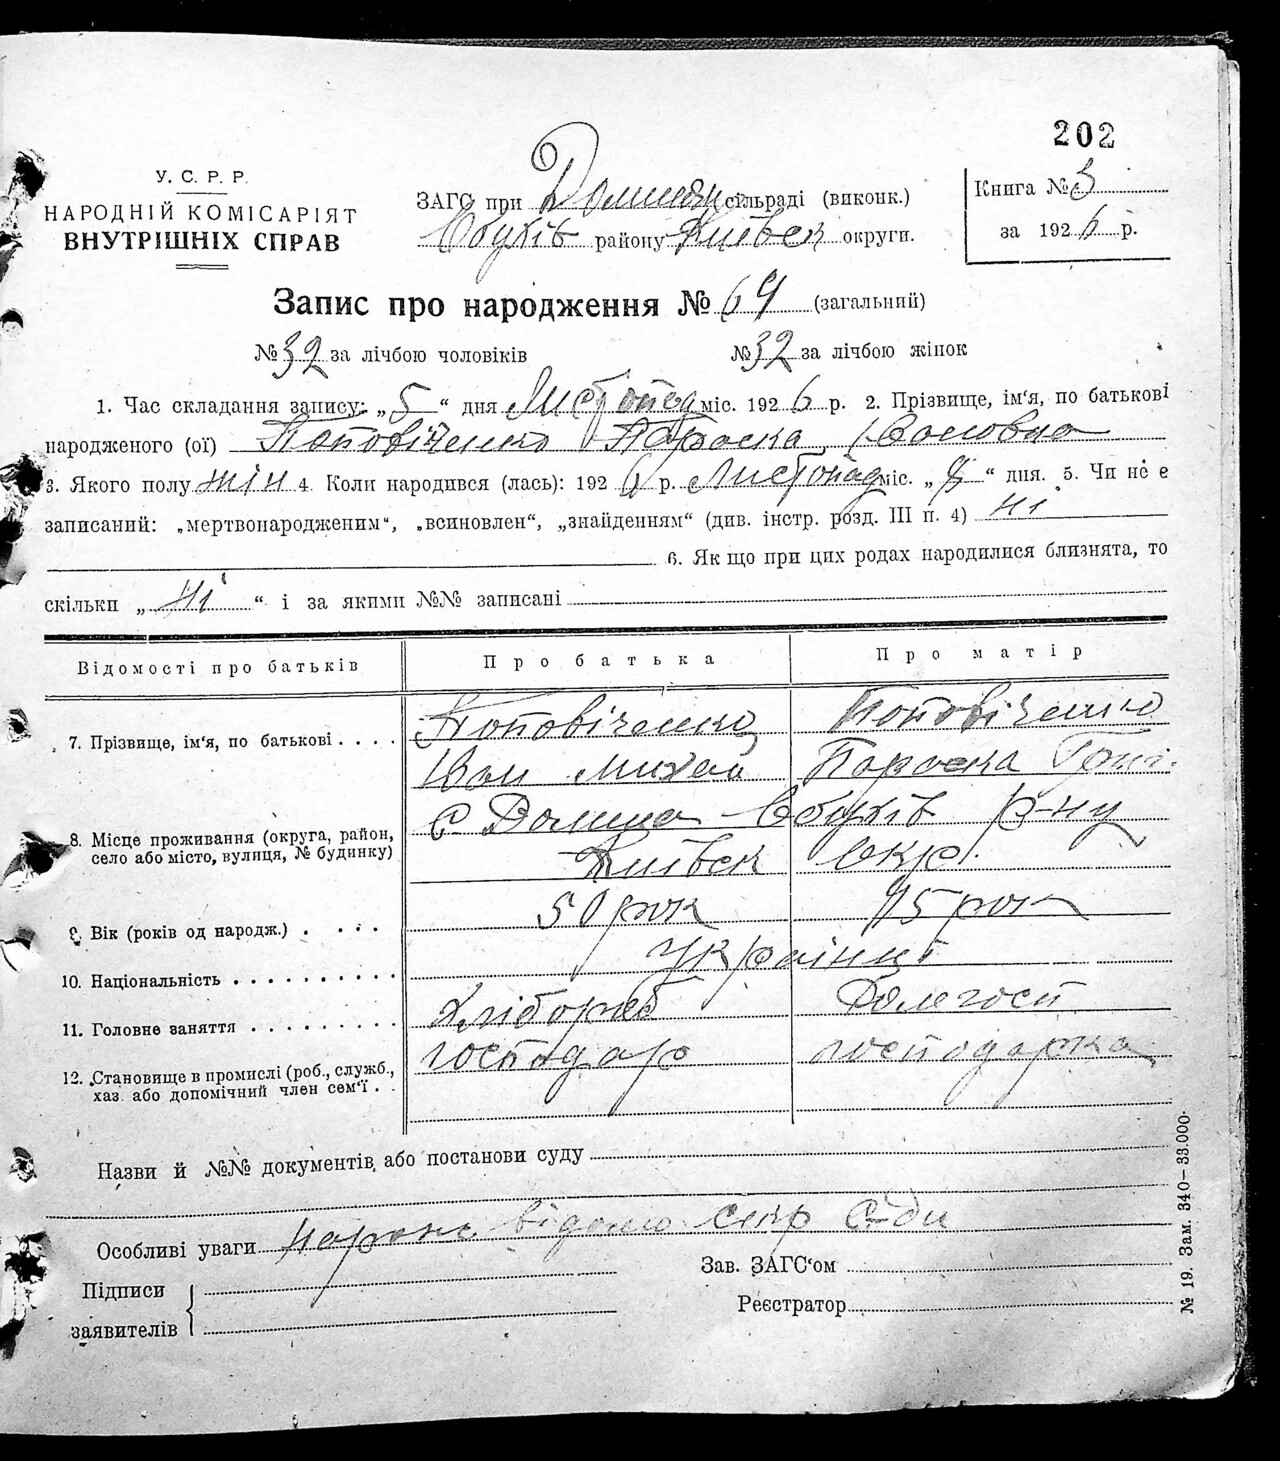 202
У. С. Р. Р.
НАРОДНІЙ КОМІСАРІЯТ
ВНУТРІШНІХ СПРАВ
ЗАГС при Долинян сільраді (виконк.)
Обухів району Київск округи.
Книга № 3
за 1926 р.
Запис про народження № 64 (загальний)
№ 32 за лічбою чоловіків № 32 за лічбою жінок
1. Час складання запису: „5“ дня Листопад міс. 1926 р. 2. Прізвище, ім‘я, по батькові
народженого (ої) Поповіченко Пароска Івановна
3. Якого полу жін 4. Коли народився (лась): 1926 р. Листопад міс. „ “ дня. 5. Чи не є
записаний: „мертвонародженим“, „всиновлен“, „знайденням“ (див. інстр. розд. III п. 4) ні
6. Як що при цих родах народилися близнята, то
скільки „ні“ і за якими №№ записані
Відомості про батьків Про батька Про матір
7. Прізвище, ім‘я, по батькові . . . . Поповіченко Поповіченко
Іван Михай Пароска Григ.
8. Місце проживання (округа, район, село або місто, вулиця, № будинку) с Долина Обухів р-ну
Київск окр.
9. Вік (років од народж.) . . . . 50 рок 45 рок
10. Національність . . . . . . . . . . Українці
11. Головне заняття . . . . . . . . . Хлібороб Домгосп
12. Становище в промислі (роб., служб., хаз. або допомічний член сем‘ї . . господар господарка
Назви й №№ документів або постанови суду
Особливі уваги відомо с-ди
Підписи
заявителів
Зав. ЗАГС‘ом
Реєстратор
№ 19. Зам. 340—33.000.